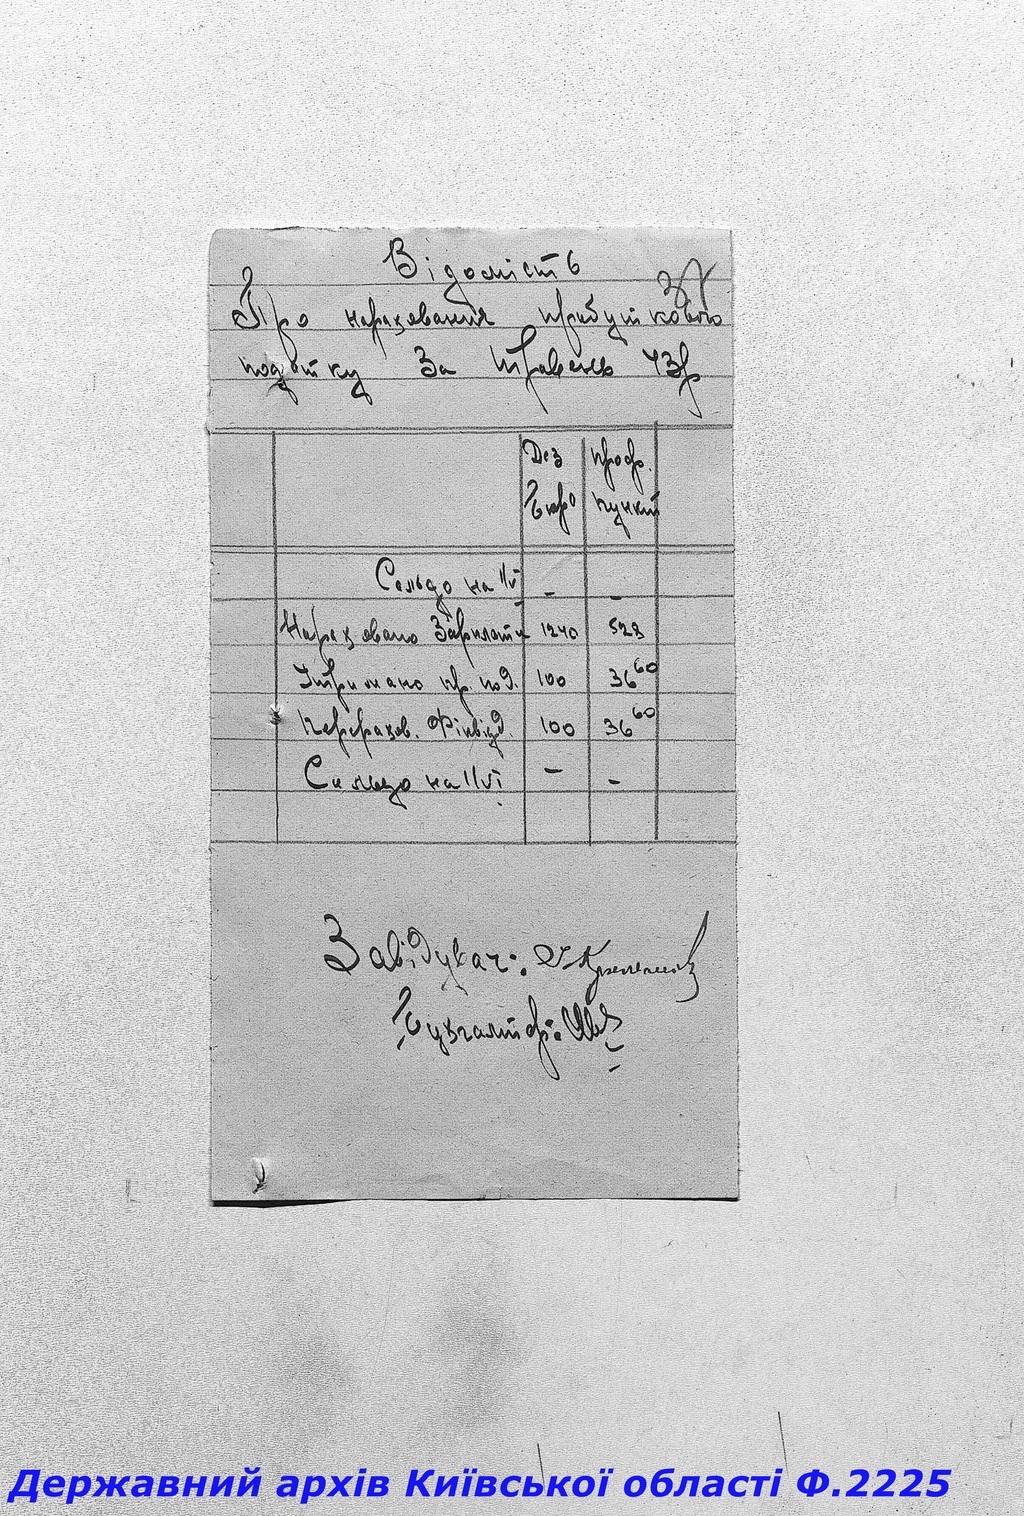 Відомість
37
Про нарахування прибуткового
податку За травень 43р
Дез бюро
проф. пункт
Сальдо на 1/V - -
Нараховано Зарплати 1240 523
Утримано пр. под. 100 36 60
Перерахов. Фінвідд. 100 36 60
Сальдо на 1/VI - -
Завідувач:
Бухгалтер:
Державний архів Київської області Ф.2225